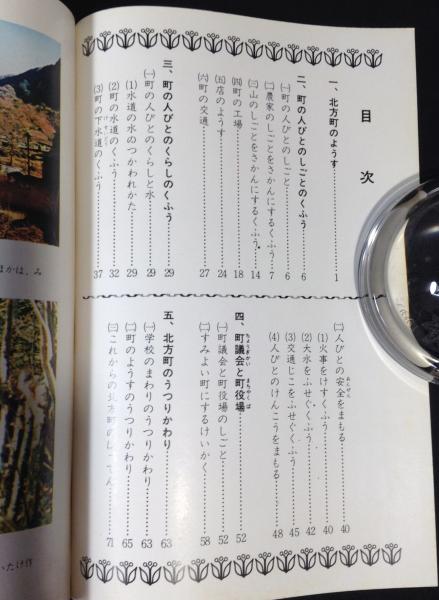 目次
一、北方町のようす……1
二、町の人びとのしごとのくふう……6
㈠町の人びとのしごと……6
㈡農家のしごとをさかんにするくふう……7
㈢山のしごとをさかんにするくふう……14
㈣町の工場……18
㈤店のようす……24
㈥町の交通……27
三、町の人びとのくらしのくふう……29
㈠町の人びとのくらしと水……29
(1)水道の水のつかわれかた……29
(2)町の水道のくふう……32
(3)町の下水道のくふう……37
㈡人びとの安全をまもる……40
(1)火事をけすくふう……40
(2)大水をふせぐくふう……42
(3)交通じこをふせぐくふう……45
(4)人びとのけんこうをまもる……48
四、町議会と町役場……52
㈠町議会と町役場のしごと……52
㈡すみよい町にするけいかく……58
五、北方町のうつりかわり……63
㈠学校のまわりのうつりかわり……63
㈡町のようすのうつりかわり……65
㈢これからの北方町の……71
まかは、み
いたけ作